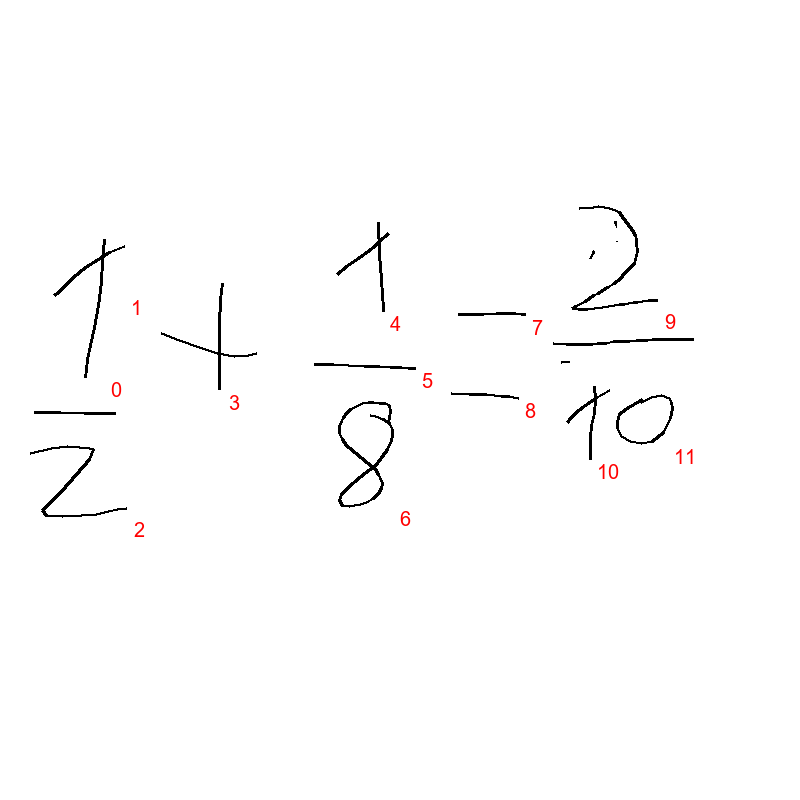 1/2 + 1/8 = 2/10
0 1 2 3 4 5 6 7 8 9 10 11